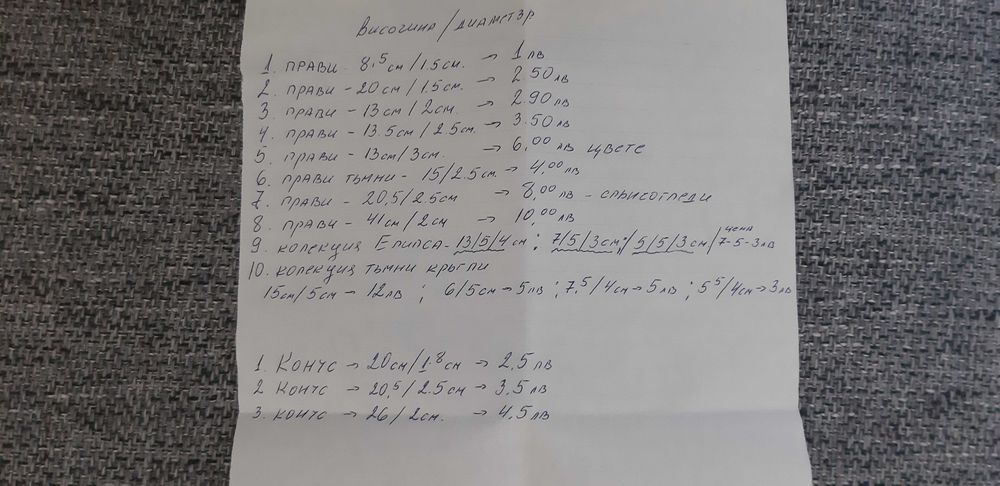 Височина/диаметър
1. прави - 8,5см/1.5см. → 1 лв
2. прави - 20см/1.5см. → 2 50 лв
3. прави - 13см/2см. → 2.90 лв
4. прави - 13.5см/2.5см. → 3.50 лв
5. прави - 13см/3см. → 6,00 лв цвете
6. прави тъмни - 15/2.5см. → 4,00 лв
7. прави - 20,5/2.5см → 8,00 лв - слънчогледи
8. прави - 41см/2см → 10,00 лв
9. колекция Елипса - 13/5/4см ; 7/5/3см ; 5/5/3см / цена 7-5-3лв
10. колекция тъмни кръгли
15см/5см → 12лв ; 6/5см → 5лв ; 7,5/4см → 5лв ; 5 5/4см → 3лв
1. Конус → 20см/1.8см → 2,5 лв
2 Конус → 20,5/2.5см → 3,5 лв
3. конус → 26/2см. → 4.5 лв